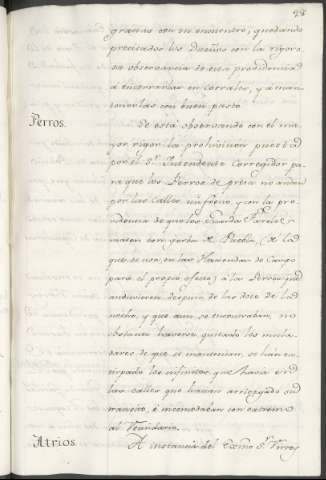 28
gracias con su encuentro, quedando
precisados los Dueños con la rigoro-
sa observancia de esta providencia
a encerrarlas en corrales, y a man-
tenerlas con buen pasto.
Perros.
Se está observando con el ma-
yor rigor la prohivicion puesta
por el Sr. Intendente Corregidor pa-
ra que los Perros de presa no anden
por las calles sin freno, y con la pro-
videncia de que los Guarda Faroles
maten con yerba de Puebla, (de la
que se usa en las Haciendas de Campo
para el propio efecto) á los Perros que
anduviesen después de las doce de la
noche, y que aun se encontraban, no
obstante haverse quitado los mula-
dares de que se mantenian, se han ex-
tirpado los infinitos que havia en
las calles que hacian arriesgado su
transito, é incomodaban con extremo
al Vecindario.
Atrios.
A instancia del Exmo. Sr. Virrey